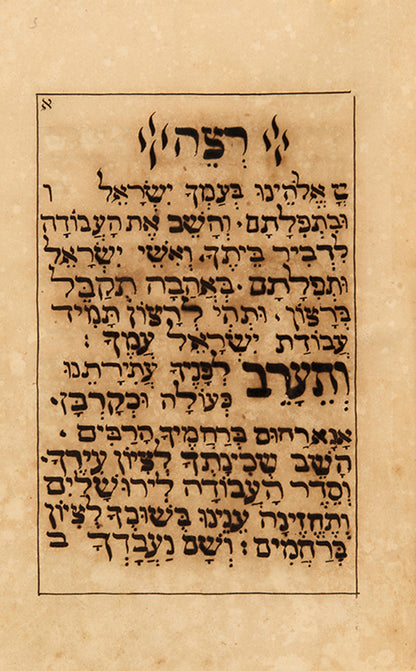 א
רְצֵה
יָ אֱלֹהֵינוּ בְּעַמְּךָ יִשְׂרָאֵל ו
וּבִתְפִלָּתָם. וְהָשֵׁב אֶת הָעֲבוֹדָה
לִדְבִיר בֵּיתֶךָ. וְאִשֵּׁי יִשְׂרָאֵל
וּתְפִלָּתָם. בְּאַהֲבָה תְקַבֵּל
בְּרָצוֹן. וּתְהִי לְרָצוֹן תָּמִיד
עֲבוֹדַת יִשְׂרָאֵל עַמֶּךָ:
וְתֶעֱרַב לְפָנֶיךָ עֲתִירָתֵנוּ
כְּעוֹלָה וּכְקָרְבָּן.
אָנָּא רַחוּם בְּרַחֲמֶיךָ הָרַבִּים.
הָשֵׁב שְׁכִינָתְךָ לְצִיּוֹן עִירֶךָ.
וְסֵדֶר הָעֲבוֹדָה לִירוּשָׁלַיִם
וְתֶחֱזֶינָה עֵינֵינוּ בְּשׁוּבְךָ לְצִיּוֹן
בְּרַחֲמִים: וְשָׁם נַעֲבָדְךָ ב